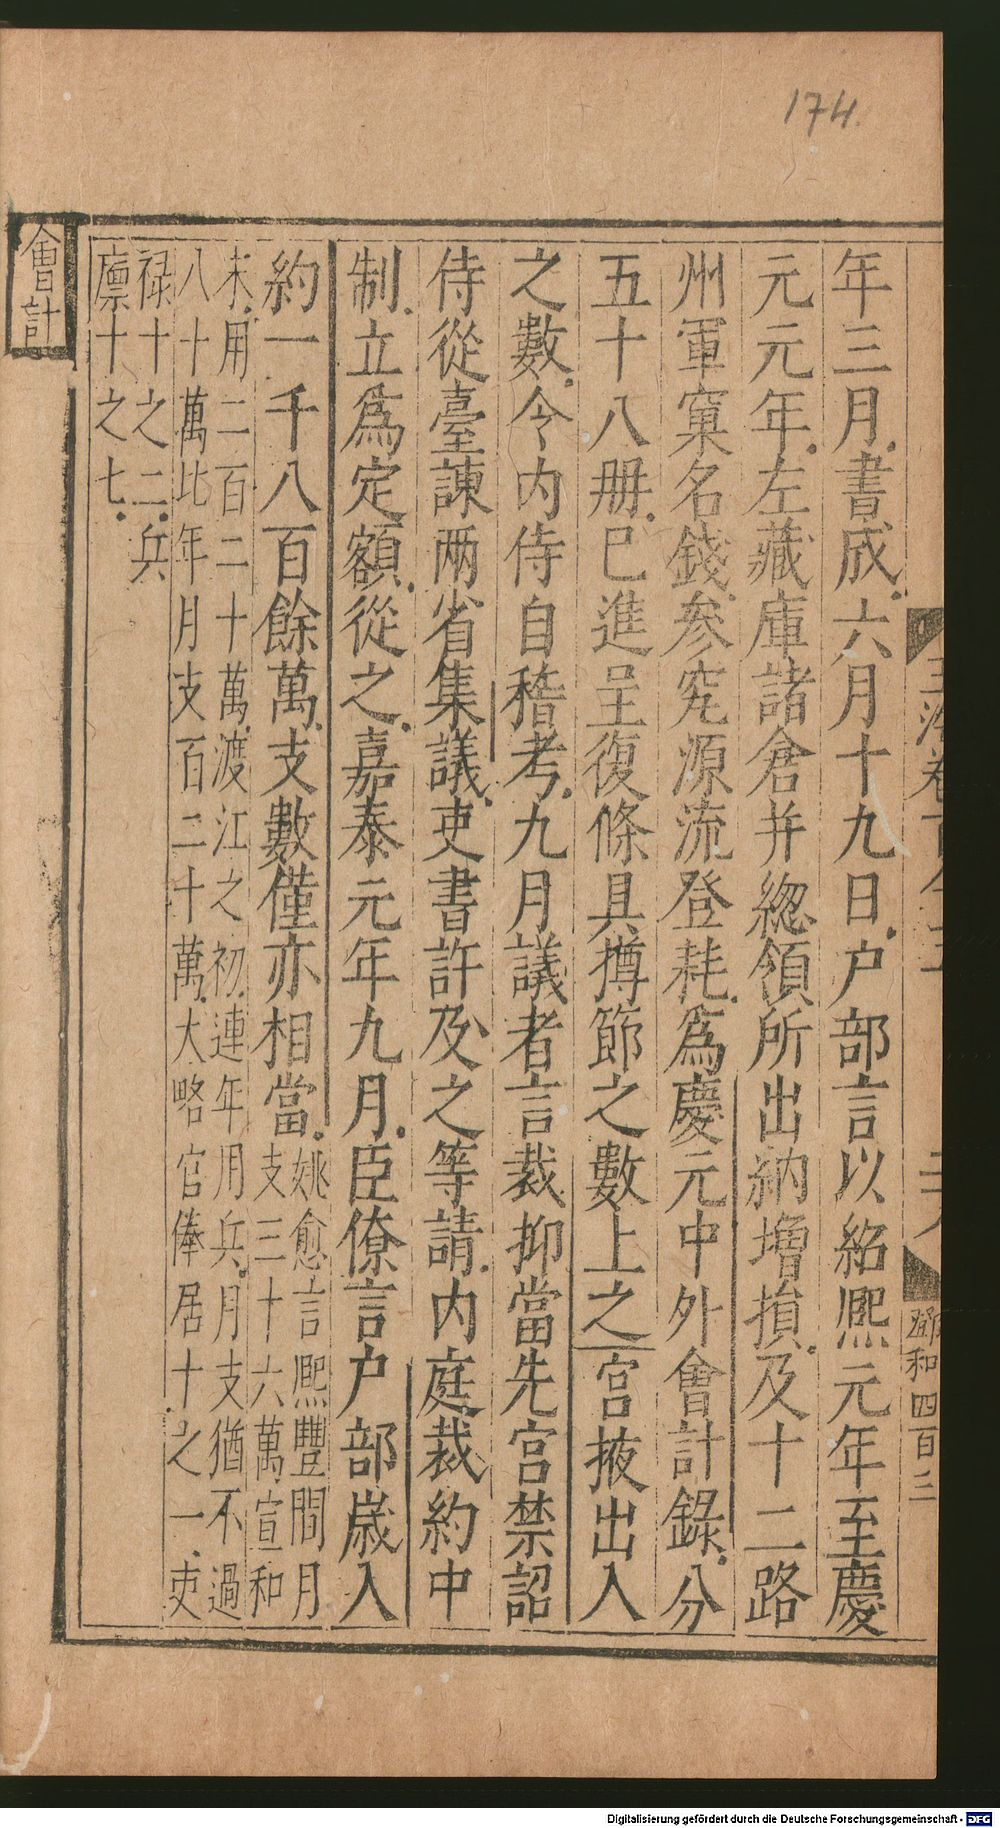 174.
年三月書成六月十九日户部言以紹熈元年至慶
元元年左藏庫諸倉并緫領所出納増損及十二路
州軍窠名錢參究源流登耗為慶元中外會計錄分
五十八册已進呈復條具撙節之數上之宫掖出入
之數令内侍自稽考九月議者言裁抑當先宫禁詔
侍從臺諫两省集議吏書許及之等請内庭裁約中
制立為定額從之嘉泰元年九月臣僚言户部嵗入
約一千八百餘萬支數僅亦相當姚愈言熈豐間月
支三十六萬宣和
末用二百二十萬渡江之初連年用兵月支猶不過
八十萬比年月支百二十萬大略官俸居十之一吏
禄十之二兵
廪十之七
會計
鄧和四百三
Digitalisierung gefördert durch die Deutsche Forschungsgemeinschaft - DFG